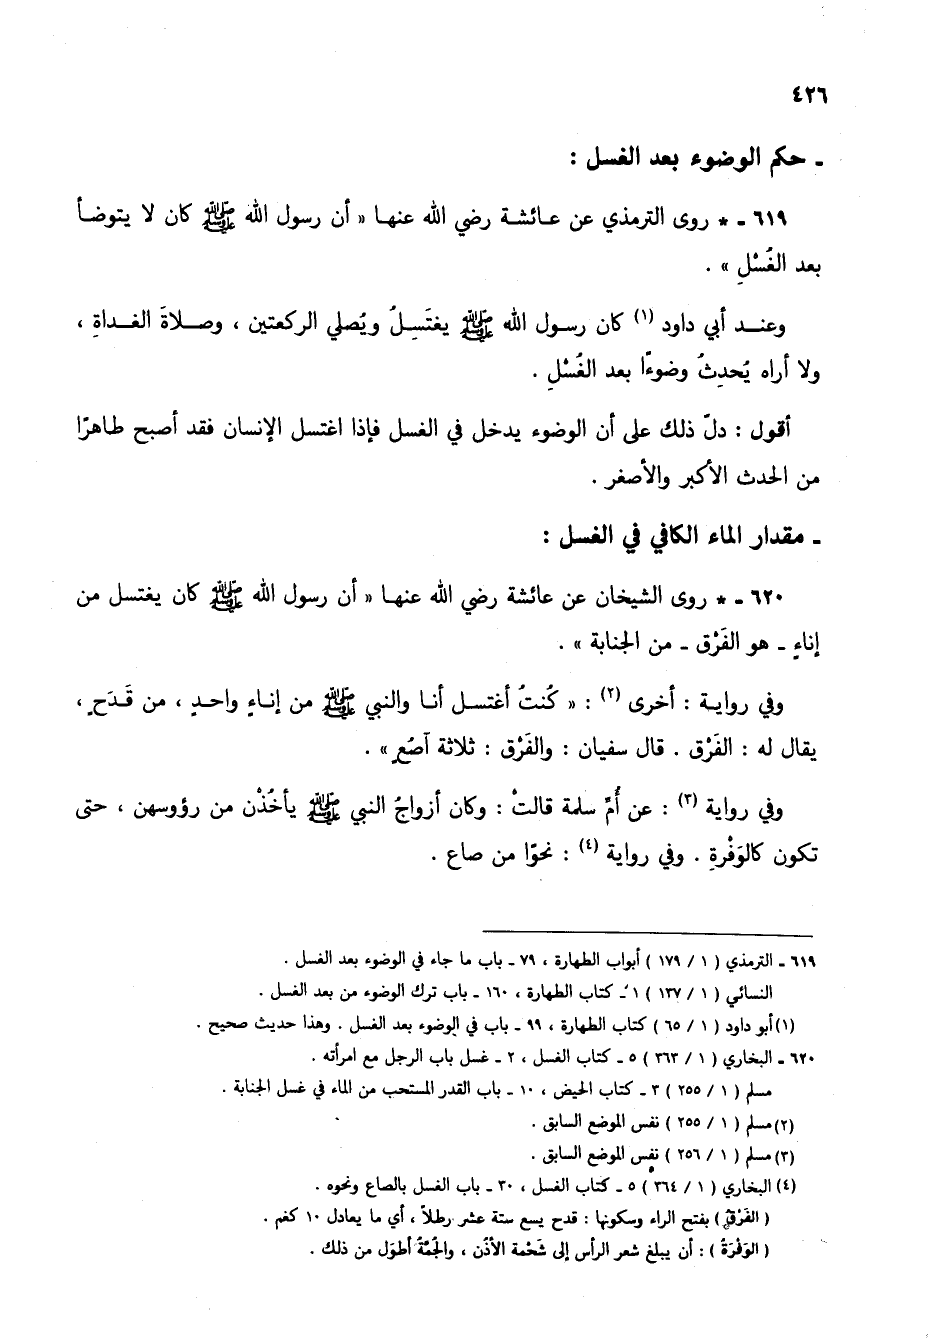 ٤٢٦
ـ حكم الوضوء بعد الغسل :
٦١٩ ـ * روى الترمذي عن عائشة رضي الله عنها « أن رسول الله ﷺ كان لا يتوضأ
بعد الغُسْلِ » .
وعند أبي داود (١) كان رسول الله ﷺ يغتَسِلُ ويُصلي الركعتين ، وصلاةَ الغداةِ ،
ولا أراه يُحدِثُ وضوءًا بعد الغُسْلِ .
أقول : دلّ ذلك على أن الوضوء يدخل في الغسل فإذا اغتسل الإنسان فقد أصبح طاهرًا
من الحدث الأكبر والأصغر .
ـ مقدار الماء الكافي في الغسل :
٦٢٠ ـ * روى الشيخان عن عائشة رضي الله عنها « أن رسول الله ﷺ كان يغتسل من
إناءٍ ـ هو الفَرْق ـ من الجنابة » .
وفي رواية : أخرى (٢) : « كُنتُ أغتسل أنا والنبي ﷺ من إناءٍ واحدٍ ، من قَدَحٍ ،
يقال له : الفَرْق . قال سفيان : والفَرْق : ثلاثة آصُعٍ » .
وفي رواية (٣) : عن أُمّ سلمة قالتْ : وكان أزواجُ النبي ﷺ يأخُذْن من رؤوسهن ، حتى
تكون كالوَفْرةِ . وفي رواية (٤) : نحوًا من صاع .
٦١٩ ـ الترمذي ( ١ / ١٧٩ ) أبواب الطهارة ، ٧٩ ـ باب ما جاء في الوضوء بعد الغسل .
النسائي ( ١ / ١٣٧ ) ١ ـ كتاب الطهارة ، ١٦٠ ـ باب ترك الوضوء من بعد الغسل .
(١) أبو داود ( ١ / ٦٥ ) كتاب الطهارة ، ٩٩ ـ باب في الوضوء بعد الغسل . وهذا حديث صحيح .
٦٢٠ ـ البخاري ( ١ / ٣٦٣ ) ٥ ـ كتاب الغسل ، ٢ ـ غسل باب الرجل مع امرأته .
مسلم ( ١ / ٢٥٥ ) ٣ ـ كتاب الحيض ، ١٠ ـ باب القدر المستحب من الماء في غسل الجنابة .
(٢) مسلم ( ١ / ٢٥٥ ) نفس الموضع السابق .
(٣) مسلم ( ١ / ٢٥٦ ) نفس الموضع السابق .
(٤) البخاري ( ١ / ٣٦٤ ) ٥ ـ كتاب الغسل ، ٣٠ ـ باب الغسل بالصاع ونحوه .
( الفَرْق ) بفتح الراء وسكونها : قدح يسع ستة عشر رطلاً ، أي ما يعادل ١٠ كغم .
( الوَفْرَةُ ) : أن يبلغ شعر الرأس إلى شَحْمة الأذُن ، والجُمَّةُ أطوَل من ذلك .